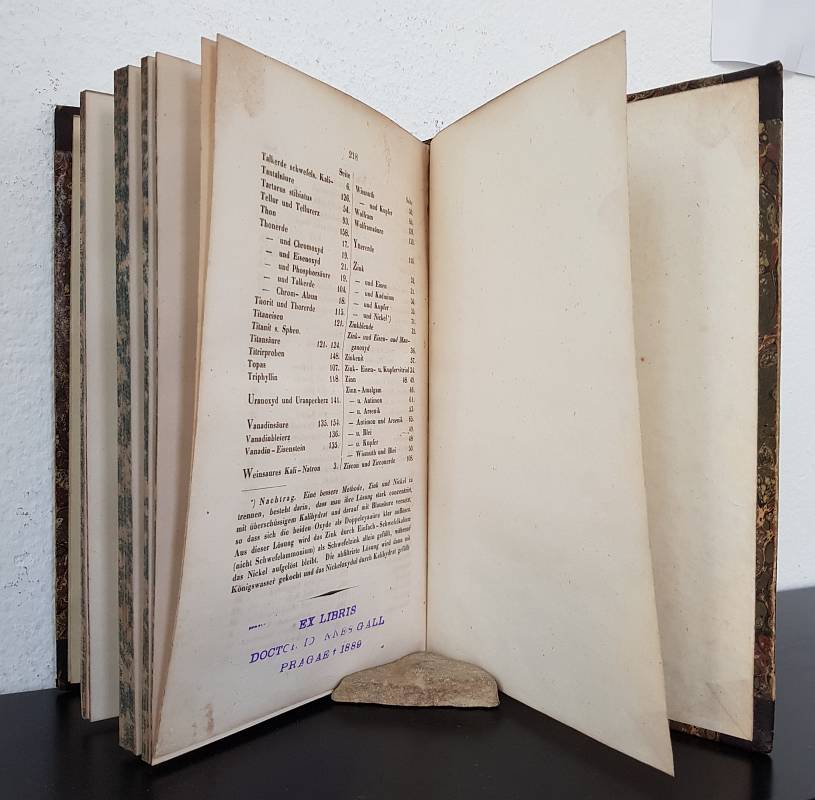 218
Seite
Talkerde schwefels. Kali- 6.
Tantalsäure 126.
Tartarus stibiatus 54.
Tellur und Tellurerz 93.
Thon 158.
Thonerde 17.
— und Chromoxyd 19.
— und Eisenoxyd 21.
— und Phosphorsäure 19.
— und Talkerde 104.
— Chrom-Alaun 18.
Thorit und Thorerde 115.
Titaneisen 121.
Titanit s. Sphen.
Titansäure 121. 124.
Titrirproben 148.
Topas 107.
Triphyllin 118.
Uranoxyd und Uranpecherz 141.
Vanadinsäure 135. 154.
Vanadinbleierz 136.
Vanadin-Eisenstein 135.
Weinsaures Kali-Natron 3.
Seite
Wismuth
— und Kupfer
Wolfram
Wolframsäure
Yttererde
Zink
— und Eisen
— und Kadmium
— und Kupfer
— und Nickel*)
Zinkblende
Zink- und Eisen- und Man-
ganoxyd 56.
Zinkenit 57.
Zink- Eisen- u. Kupfervitriol 24.
Zinn 48. 49.
Zinn-Amalgam 46.
— u. Antimon 44.
— u. Arsenik 43.
— Antimon und Arsenik 65.
— u. Blei 49.
— u. Kupfer 48
— Wismuth und Blei 50.
Zircon und Zirconerde 108.
*) Nachtrag. Eine bessere Methode, Zink und Nickel zu
trennen, besteht darin, dass man ihre Lösung stark concentrirt,
mit überschüssigem Kalihydrat und darauf mit Blausäure versetzt,
so dass sich die beiden Oxyde als Doppelcyanüre klar auflösen.
Aus dieser Lösung wird das Zink durch Einfach-Schwefelkalium
(nicht Schwefelammonium) als Schwefelzink allein gefällt, während
das Nickel aufgelöst bleibt. Die abfiltrirte Lösung wird dann mit
Königswasser gekocht und das Nickeloxydul durch Kalihydrat gefällt
EX LIBRIS
GALL
PRAGAE † 1889